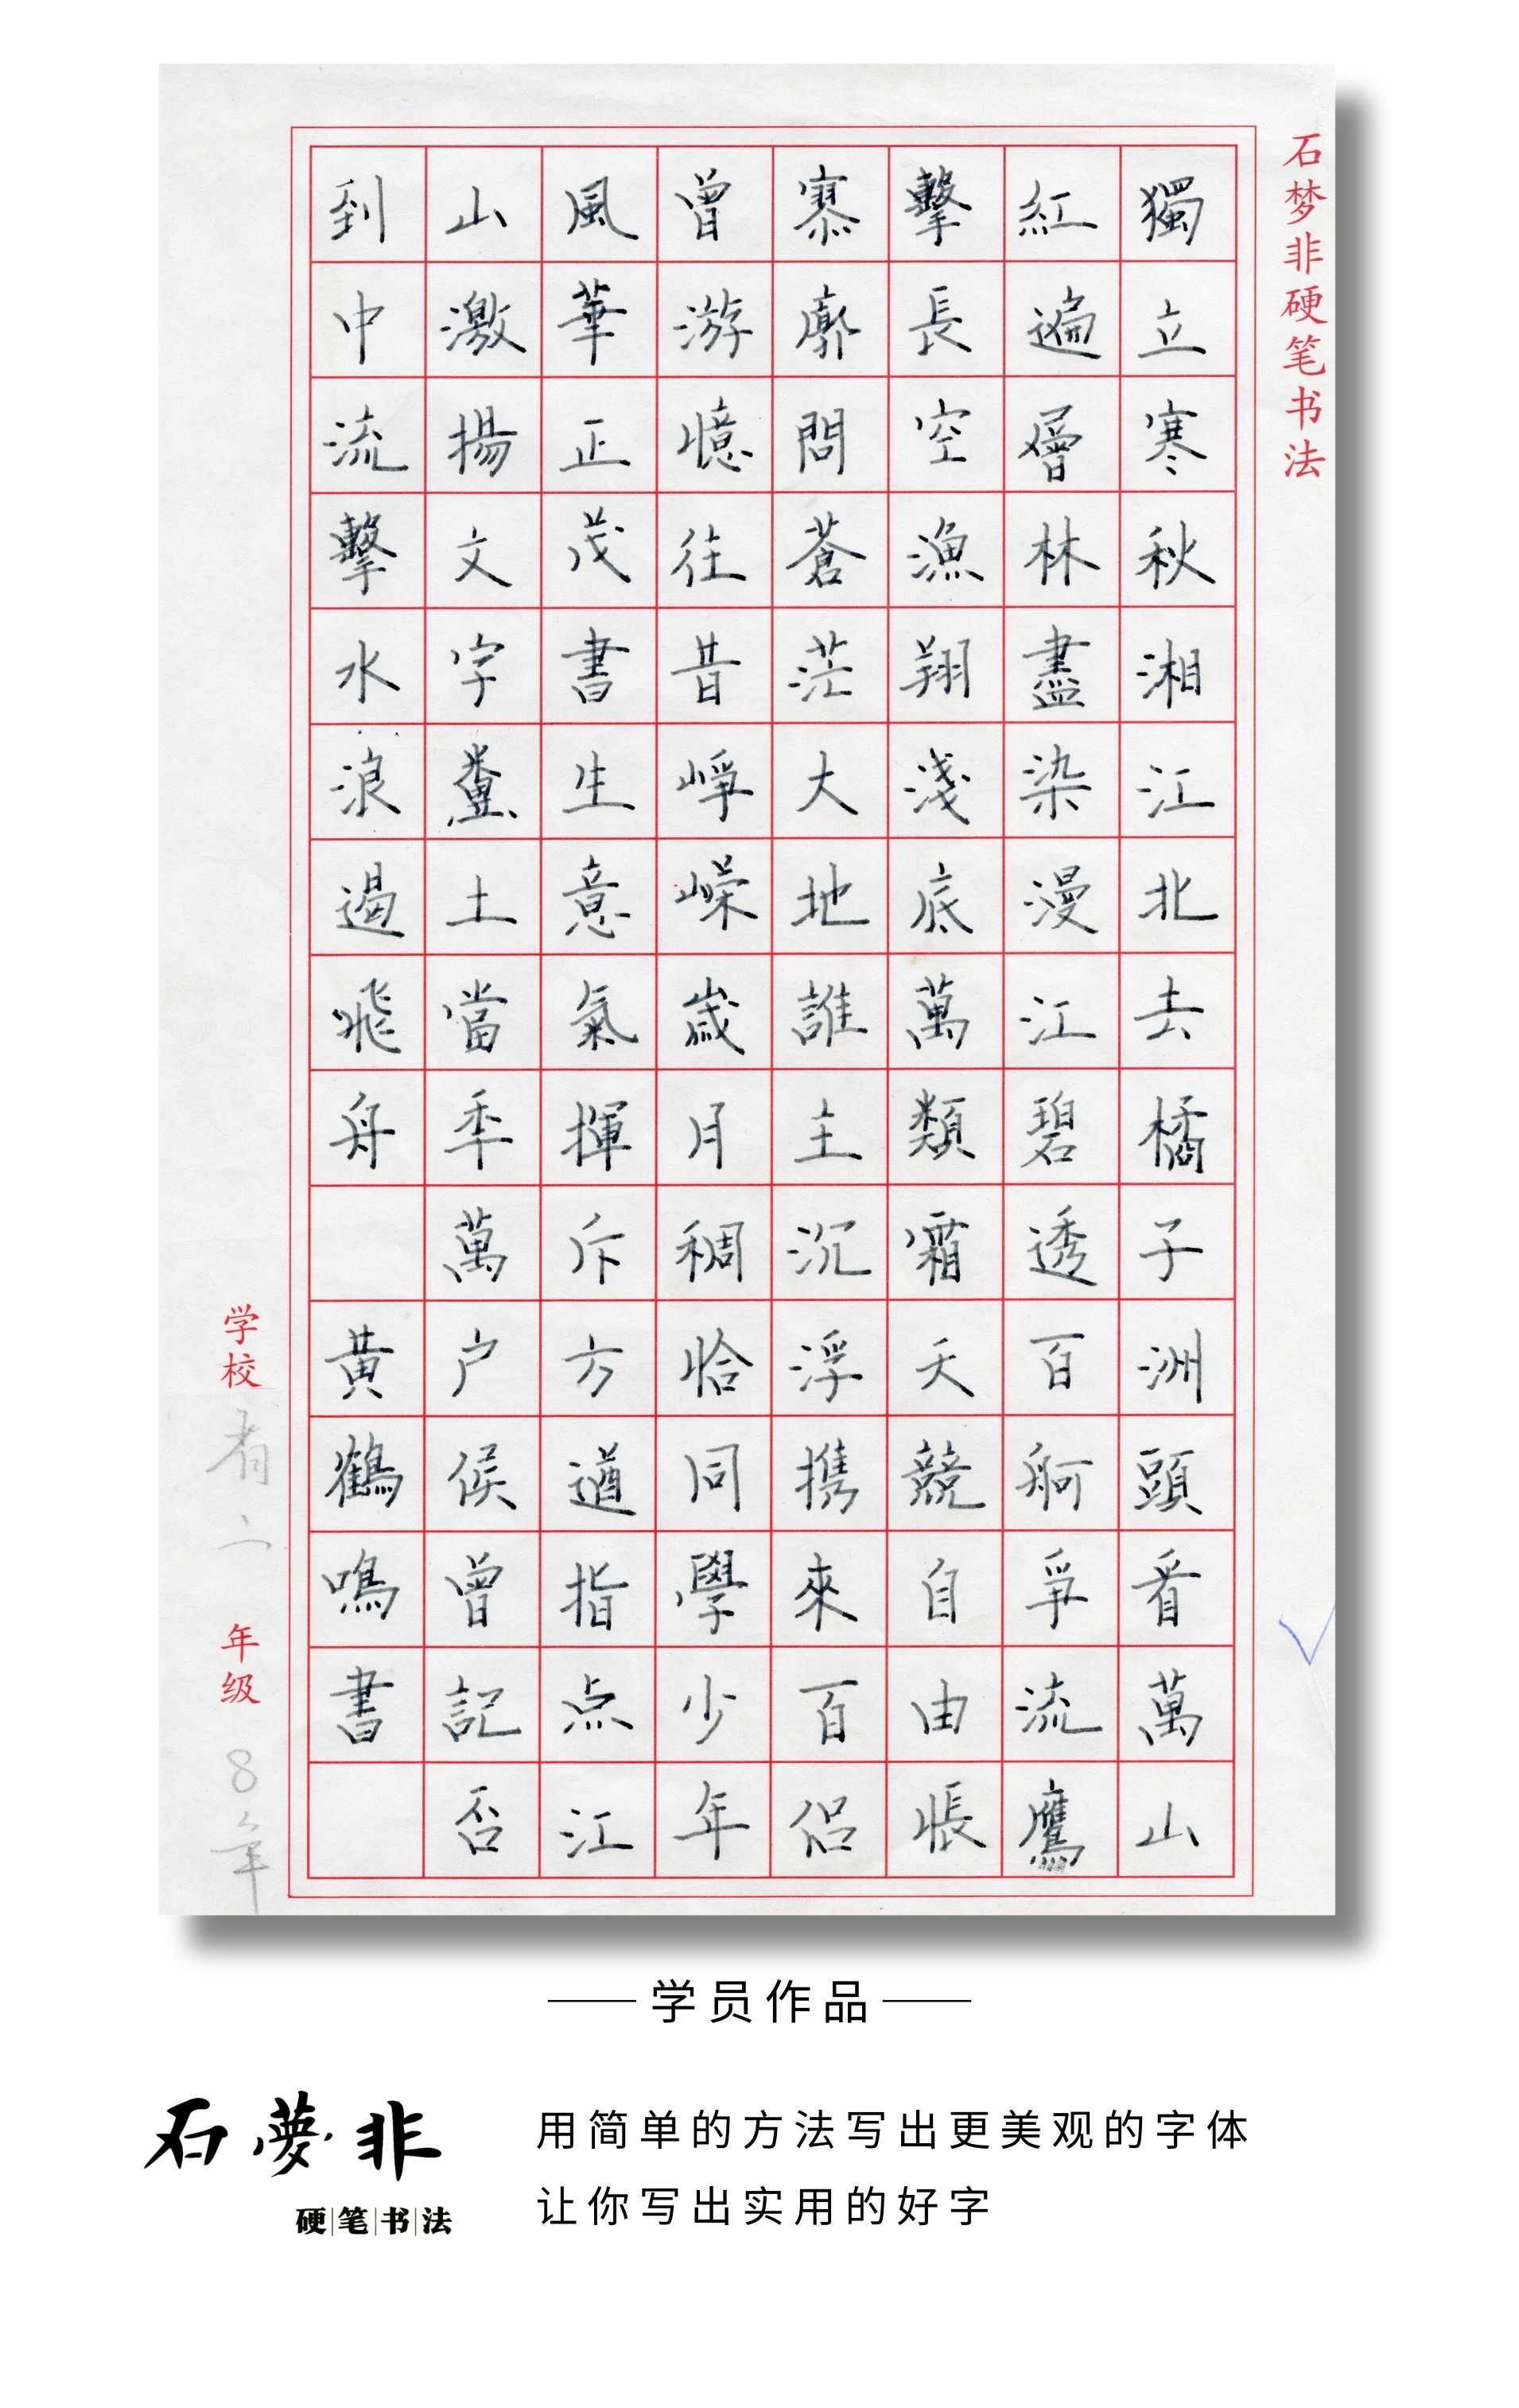 石梦非硬笔书法
獨立寒秋湘江北去橘子洲頭看萬山
紅遍層林盡染漫江碧透百舸爭流鷹
擊長空漁翔淺底萬類霜天競自由悵
寥廓問蒼茫大地誰主沉浮携來百侶
曾游憶往昔崢嶸歲月稠恰同學少年
風華正茂書生意氣揮斥方遒指点江
山激揚文字糞土當年萬户侯曾記否
到中流擊水浪遏飛舟 黃鶴鳴書
学校 年级 8年
学员作品
石夢非
硬笔书法
用简单的方法写出更美观的字体
让你写出实用的好字